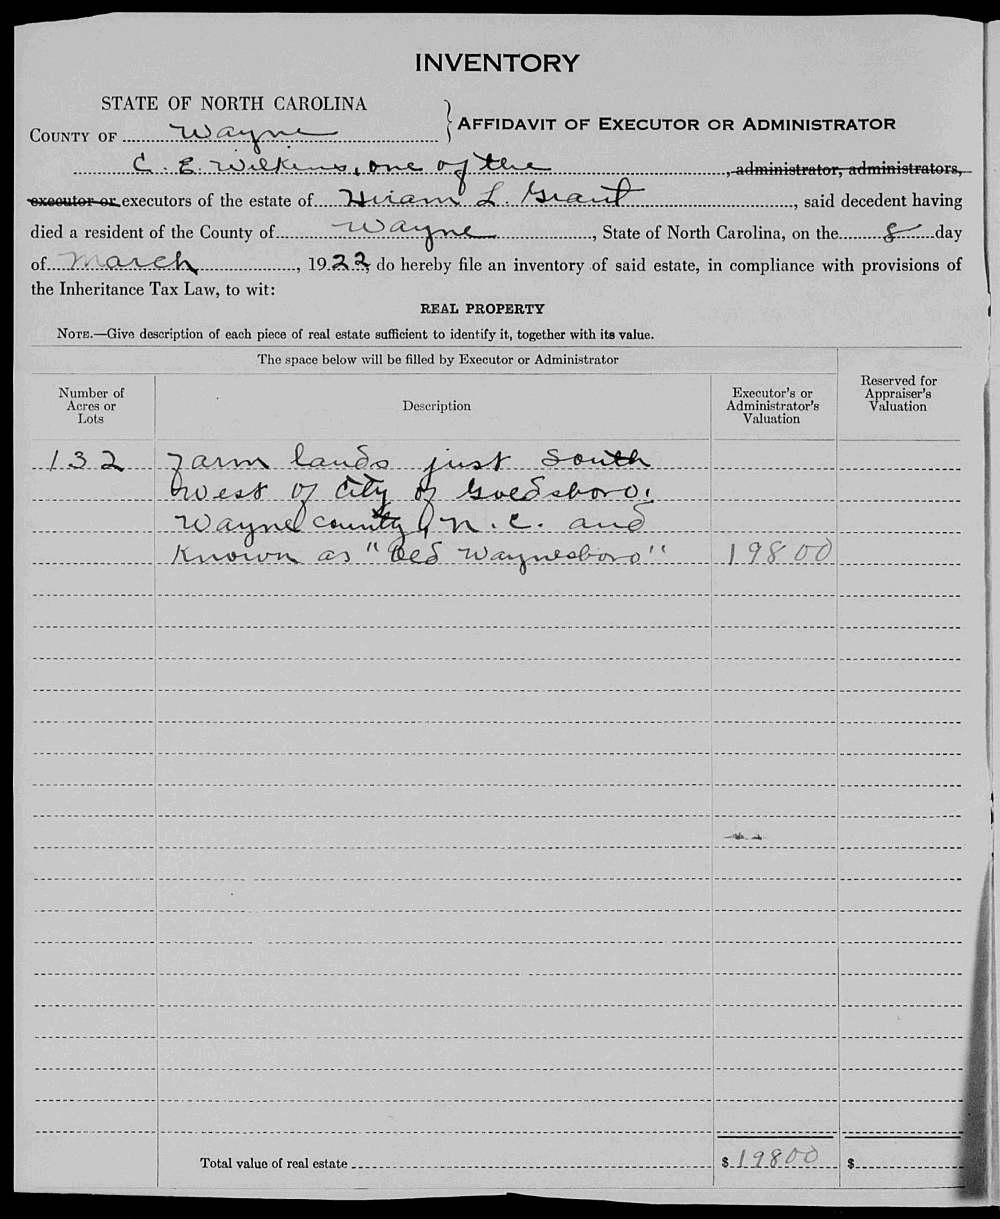 INVENTORY
STATE OF NORTH CAROLINA
COUNTY OF Wayne } AFFIDAVIT OF EXECUTOR OR ADMINISTRATOR
C. E. Wilkins, one of the , administrator, administrators,
executor or executors of the estate of Hiram L. Grant , said decedent having
died a resident of the County of Wayne , State of North Carolina, on the 8 day
of March , 1922, do hereby file an inventory of said estate, in compliance with provisions of
the Inheritance Tax Law, to wit:
REAL PROPERTY
NOTE.—Give description of each piece of real estate sufficient to identify it, together with its value.
The space below will be filled by Executor or Administrator
Number of
Acres or
Lots
Description
Executor's or
Administrator's
Valuation
Reserved for
Appraiser's
Valuation
132 Farm lands just South
West of City of Goldsboro,
Wayne county, N. C. and
Known as "Old Waynesboro" 19800
Total value of real estate $ 19800 $